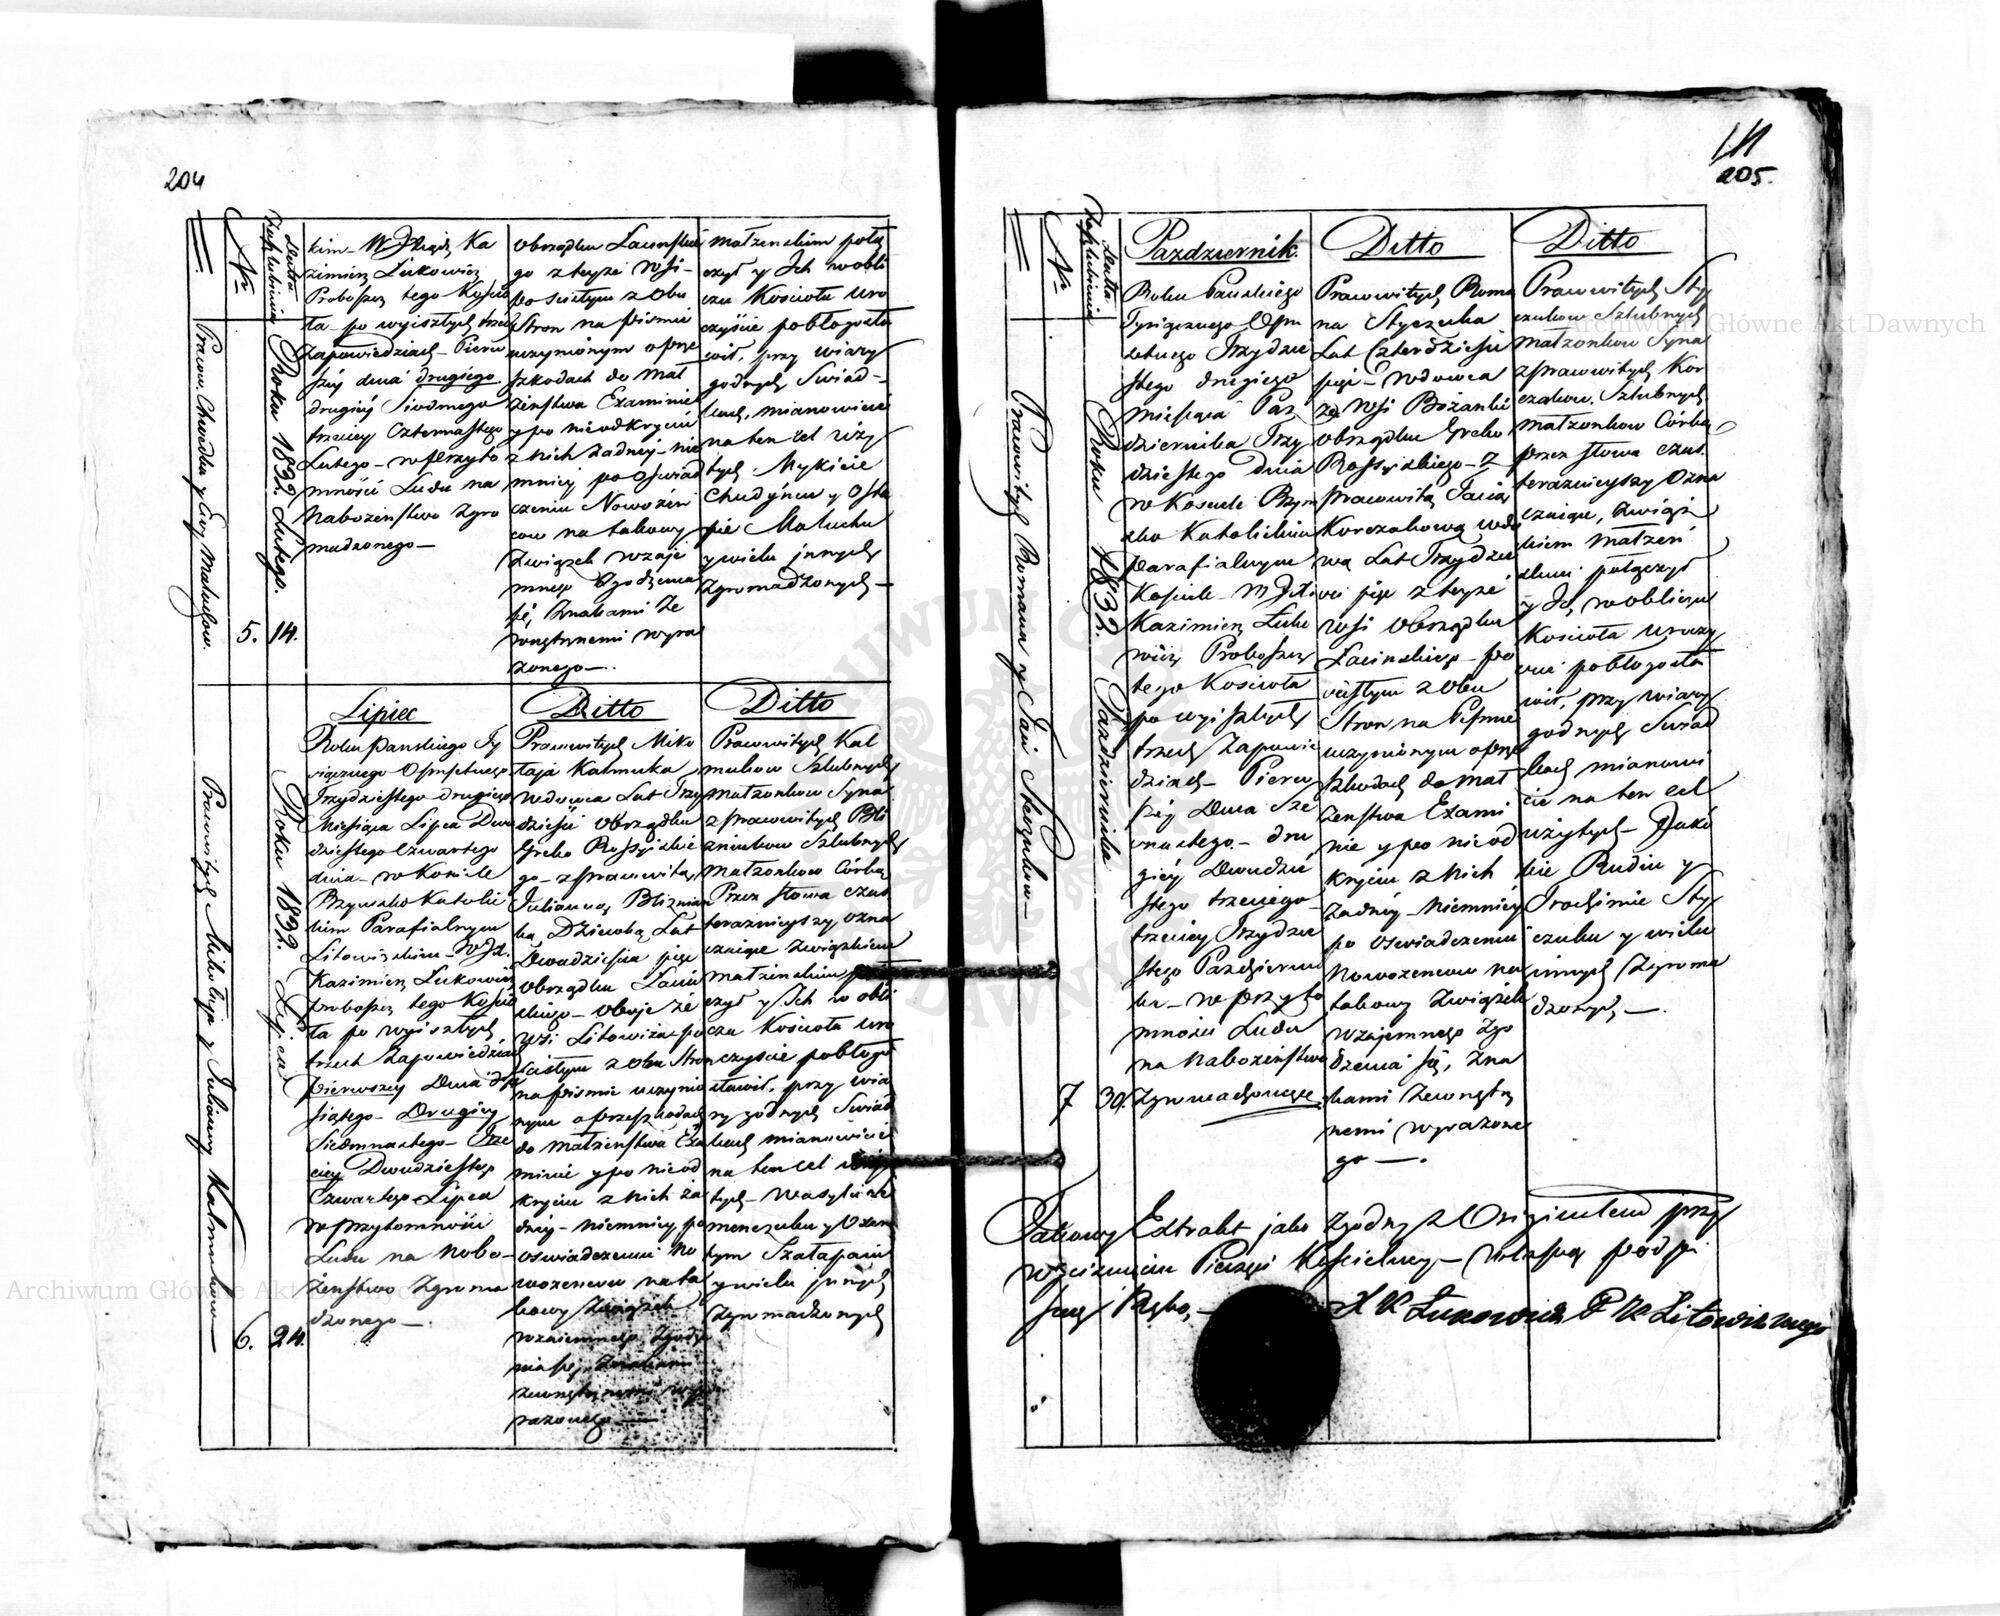 204
Nr
Data Zaślubinia
Prawow. Chwedka y Ewy Matuchow.
5.
Roku 1832. Lutego.
14.
kim – WJXiądz Ka
zimierz Łukowicz
Proboszcz tego Kościo
ła – po wyiszłych trzech
Zapowiedziach – Pierw
szey dnia drugiego
drugiey Siodmego
trzeciey Czternastego
Lutego – w przyto
mności Ludu na
Nabożenstwo zgro
madzonego –
obrządku Łacinskie
go z teyże Wsi –
po scisłym z obu
Stron na pismie
uczynionym o prze
szkodach do Mał
żenstwa Examinie
y po nieodkryciu
z nich żadney – nie
mniey po oswiad
czeniu Nowożeń
cow na takowy
Związek wzaje
mnego zgodzenia
się, Znakami Ze
wnętrznemi wyra
żonego –.
małżenskim połą
czył y Ich w obli
czu Kościoła uro
czyście pobłogosła
wił, przy wiary
godnych Swiad–
kach, mianowicie
na ten cel uży
tych – Mykicie
Chudyńcu y Osta
pie Matuchu
y wielu innych
Zgromadzonych –
Prawowitych Mikołaja y Julianny Kałmukow –
6.
Roku 1832. Lipca
24.
Lipiec
Roku Panskiego Ty
siącznego Osmsetnego
Trzydziestego drugiego
Miesiąca Lipca Dwu
dziestego Czwartego
dnia – w Kościele
Rzymsko Katolic
kim Parafialnym
Litowizkim – WJX.
Kazimierz Łukowicz
Proboszcz tego Kościo
ła po wyiszłych
trzech Zapowiedziach
pierwszey Dnia dzie
siątego – Drugiey
Siedmnastego – Trze
ciey Dwudziestego
Czwartego Lipca
w przytomności
Ludu na Nabo–
żenstwo Zgroma
dzonego –.
Ditto
Prawowitych Miko
łaja Kałmuka
Wdowca Lat Trzy
dzieści obrządku
Greko Rossyiskie
go – z prawowitą
Julianną Blizniuk
ką Dziewką Lat
Dwadziescia pięć
obrządku Łacin
skiego – oboje ze
Wsi Litowiża – po
scisłym z obu Stron
na pismie uczynio
nym o przeszkodach
do małżenstwa Exa
minie y po nieod
kryciu z nich ża
dney – niemniey po
oswiadczeniu No
wożencow na ta
kowy Związek
wzaiemnego zgodze
nia się, Znakami
zewnętrznemi wy
rażonego –
Ditto
Prawowitych Kał
mukow Szlubnych
małżonkow Syna
z prawowitych Bli
zniukow Szlubnych
Małżonkow Córką
Przez słowa czas
teraznieyszy ozna
czaiące związkiem
małżenskim połą
czył y Ich w obli
czu Kościoła uro
czyście pobłogo
sławił, przy wia
ry godnych Swiad
kach mianowicie
na ten cel uży
tych – Wasylu
y
tym Szałapaiu
y wielu innych
Zgromadzonych
111
205.
Nr
Data Zaślubinia
Prawowitych Romana y Steczukow –
7
Roku 1832. Pazdziernika
30.
Pazdziernik.
Roku Panskiego
Tysiącznego Osm
setnego Trzydzie
stego drugiego
Miesiąca Paz
dziernika Trzy
dziestego dnia
w Kosciele Rzym
sko Katolickim
Parafialnym
Kościele – WJX
Kazimierz Łuko
wicz Proboszcz
tego Kościoła
po wyiszłych
trzech Zapowie
dziach – Pierw
szey Dnia Sze
snastego – dru
giey Dwudzie
stego trzeciego –
trzeciey Trzydzie
stego Pazdzierni
ka – w przyto
mności Ludu
na Nabożenstwo
Zgromadzonego
Ditto
Prawowitych Roma
na Styczuka
Lat Czterdzieści
pięć – Wdowca
ze Wsi Bożanki
obrządku Greko
Rossyiskiego – z
prawowitą
Korczakową wdo
wą Lat Trzydzie
ści pięć z teyże
Wsi obrządku
Łacinskiego – po
scisłym z obu
Stron na Pismie
uczynionym o prze
szkodach do mał
żenstwa Exami
nie y po nieod
kryciu z nich
żadney – Niemniey
po oswiadczeniu
Nowożencow na
takowy Związek
wzajemnego zgo
dzenia się, Zna
kami Zewnętrz
nemi wyrażone
go –.
Ditto
Prawowitych Sty
czukow Szlubnych
Małżonkow Syna
z prawowitych Kor
czakow Szlubnych
małżonkow Córką
przez słowa czas
teraznieyszy Ozna
czaiące, Związ
kiem małżen
skim połączył
y Ich w obliczu
Kościoła uroczy
scie pobłogosła
wił, przy wiary
godnych Swiad
kach mianowi
cie na ten cel
użytych – Jakó
bie Rudiu y
Trochimie Sty
czuku y wielu
innych Zgroma
dzonych –.
Takowy Extrakt jako zgodny z Originałem przy
wyciśnieniu Pieczęci Kościelney – własną podpi
suię Ręką, –
X K Łukowicz P K Litowizkiego
Archiwum Główne Akt Dawnych
Archiwum Główne Akt Dawnych